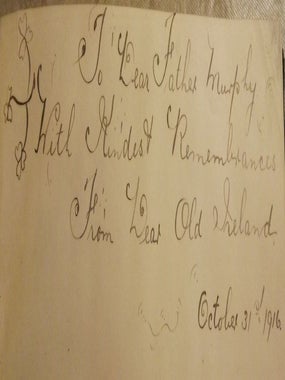 To Dear Father Murphy
With Kindest Remembrances
From Dear Old Ireland
October 31st 1916